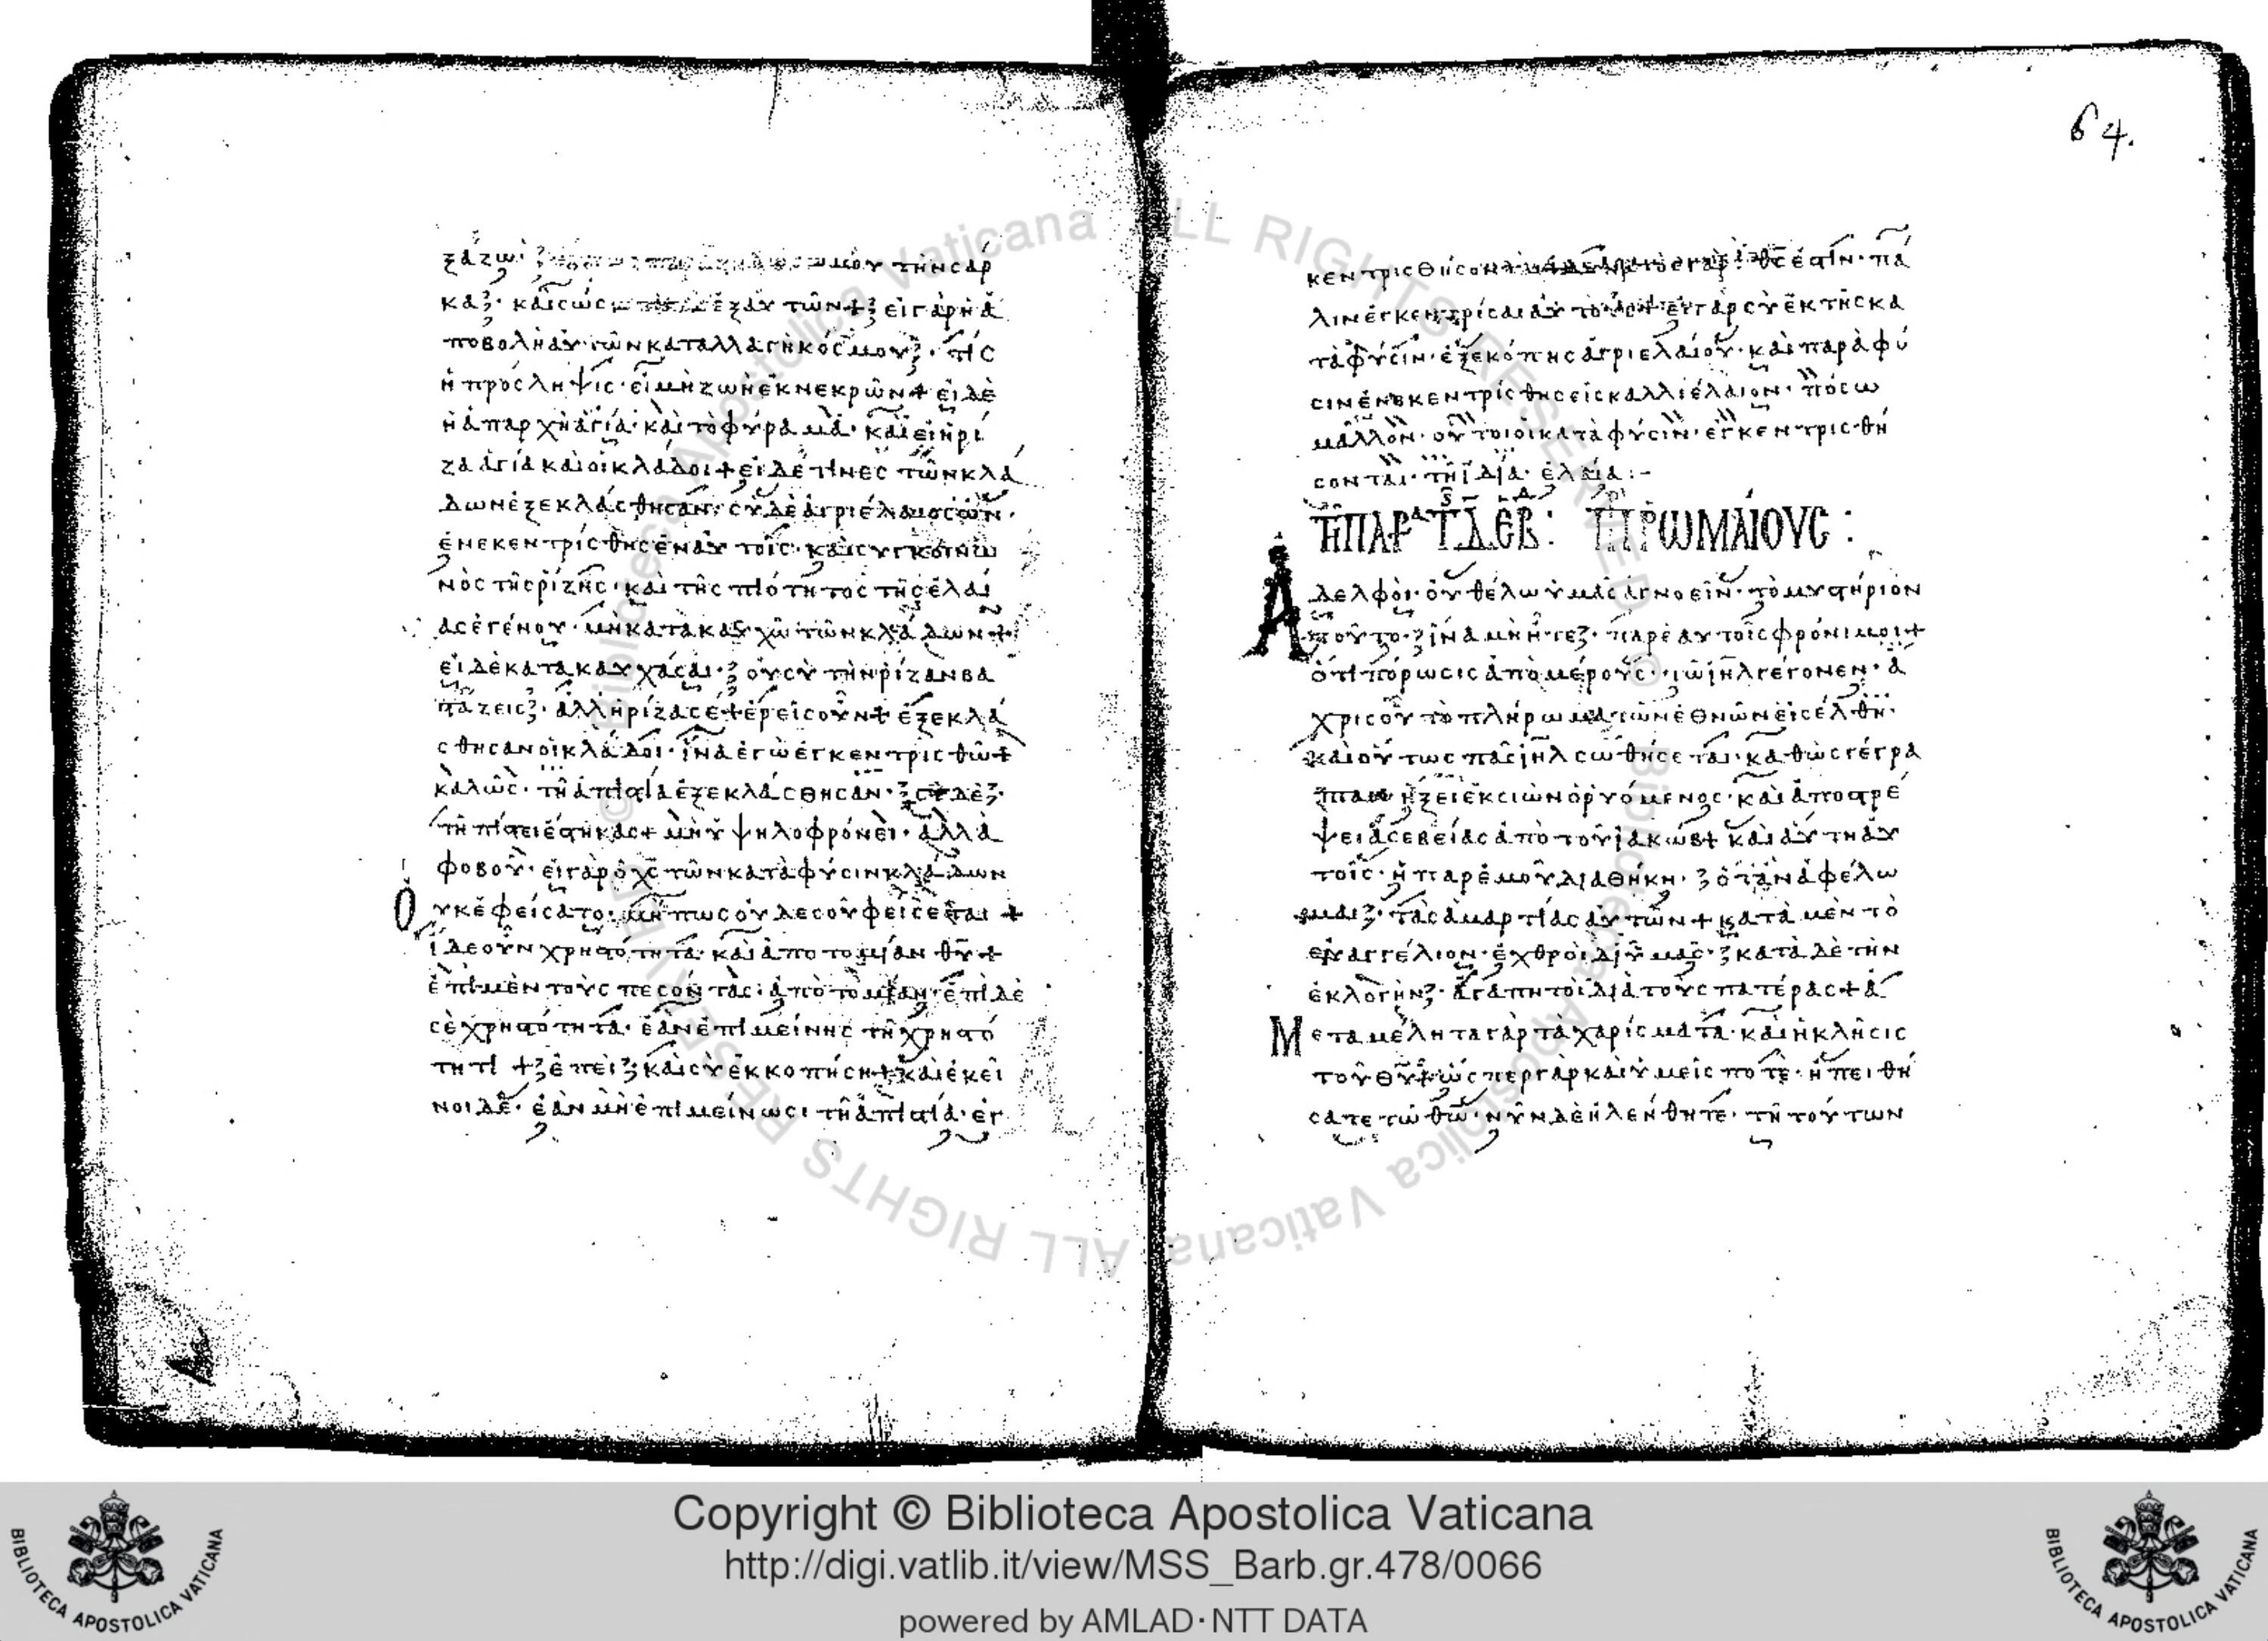 ξάζω μου τὴν σάρ
κα καὶ σώσω ἐξ αὐτῶν + εἰ γὰρ ἡ ἀ
ποβολὴ αὐτῶν καταλλαγὴ κόσμου· τίς
ἡ πρόσληψις· εἰ μὴ ζωὴ ἐκ νεκρῶν + εἰ δὲ
ἡ ἀπαρχὴ ἁγία· καὶ τὸ φύραμα· καὶ εἰ ἡ ῥί
ζα ἁγία καὶ οἱ κλάδοι + εἰ δέ τινες τῶν κλά
δων ἐξεκλάσθησαν· σὺ δὲ ἀγριέλαιος ὢν·
ἐνεκεντρίσθης ἐν αὐτοῖς· καὶ συγκοινω
νὸς τῆς ῥίζης· καὶ τῆς πιότητος τῆς ἐλαί
ας ἐγένου· μὴ κατακαυχῶ τῶν κλάδων +
εἰ δὲ κατακαυχᾶσαι· οὐ σὺ τὴν ῥίζαν βα
τάζεις· ἀλλ ἡ ῥίζα σέ + ἐρεῖς οὖν + ἐξεκλά
σθησαν οἱ κλάδοι· ἵνα ἐγὼ ἐγκεντρισθῶ +
καλῶς· τῆ ἀπιστία ἐξεκλάσθησαν· σὺ δὲ
τῆ πίστει ἕστηκας + μὴ ὑψηλοφρόνει· ἀλλὰ
φοβοῦ· εἰ γὰρ ὁ θς τῶν κατὰ φύσιν κλάδων
οὐκ ἐφείσατο· μή πως οὐδε σοῦ φείσεται +
ἴδε οὖν χρηστότητα· καὶ ἀποτομίαν θυ +
ἐπὶ μὲν τοὺς πεσόντας· ἀποτομίαν· ἐπὶ δὲ
σὲ χρηστότητα· ἐὰν ἐπιμείνης τῆ χρηστό
τητι + ἐπεὶ καὶ σὺ ἐκκοπήση + καὶ ἐκεῖ
νοι δὲ· ἐὰν μὴ ἐπιμείνωσι τῆ ἀπιστία· ἐγ
64.
κεντρισθήσονται γὰρ ὁ θς ἐστιν· πά
λιν ἐγκεντρίσαι αὐτούς + εἰ γὰρ σὺ ἐκ τῆς κα
τὰ φύσιν· ἐξεκόπης ἀγριελαίου· καὶ παρὰ φύ
σιν ἐνεκεντρίσθης εἰς καλλιέλαιον· πόσω
μᾶλλον· οὗτοι οἱ κατὰ φύσιν· ἐγκεντρισθή
σονται· τῆ ἰδία ἐλαία :-
ΤΗ ΠΑΡ Τ ΔΕ ΕΒ : ΠΡ ΡΩΜΑΙΟΥΣ :
Ἀδελφοὶ· οὐ θέλω ὑμᾶς ἀγνοεῖν· τὸ μυστήριον
τοῦτο· ἵνα μὴ ἦτε παρ ἑαυτοῖς φρόνιμοι +
ὅτι πόρωσις ἀπὸ μέρους· τῶ ιηλ γέγονεν· ἄ
χρις οὗ τὸ πλήρωμα τῶν ἐθνῶν εἰσέλθη·
καὶ οὕτως πᾶς ιηλ σωθήσεται· καθὼς γέγρα
πται ἥξει ἐκ σιὼν ὁ ῥυόμενος· καὶ ἀποστρέ
ψει ἀσεβείας ἀπὸ τοῦ ἰακώβ + καὶ αὕτη αὐ
τοῖς· ἡ παρ ἐμοῦ διαθήκη· ὅταν ἀφέλω
μαι· τὰς ἁμαρτίας αὐτῶν + κατὰ μὲν τὸ
εὐαγγέλιον· ἐχθροὶ δι ὑμᾶς· κατὰ δὲ τὴν
ἐκλογὴν· ἀγαπητοὶ διὰ τοὺς πατέρας + ἀ
Μεταμέλητα γὰρ τὰ χαρίσματα· καὶ ἡ κλῆσις
τοῦ θυ + ὥσπερ γὰρ καὶ ὑμεῖς ποτὲ· ἠπειθή
σατε τῶ θω· νῦν δὲ ἠλεήθητε· τῆ τούτων
Copyright © Biblioteca Apostolica Vaticana
http://digi.vatlib.it/view/MSS_Barb.gr.478/0066
powered by AMLAD·NTT DATA
BIBLIOTECA APOSTOLICA VATICANA
BIBLIOTECA APOSTOLICA VATICANA
© Biblioteca Apostolica Vaticana ALL RIGHTS RESERVED
© Biblioteca Apostolica Vaticana ALL RIGHTS RESERVED